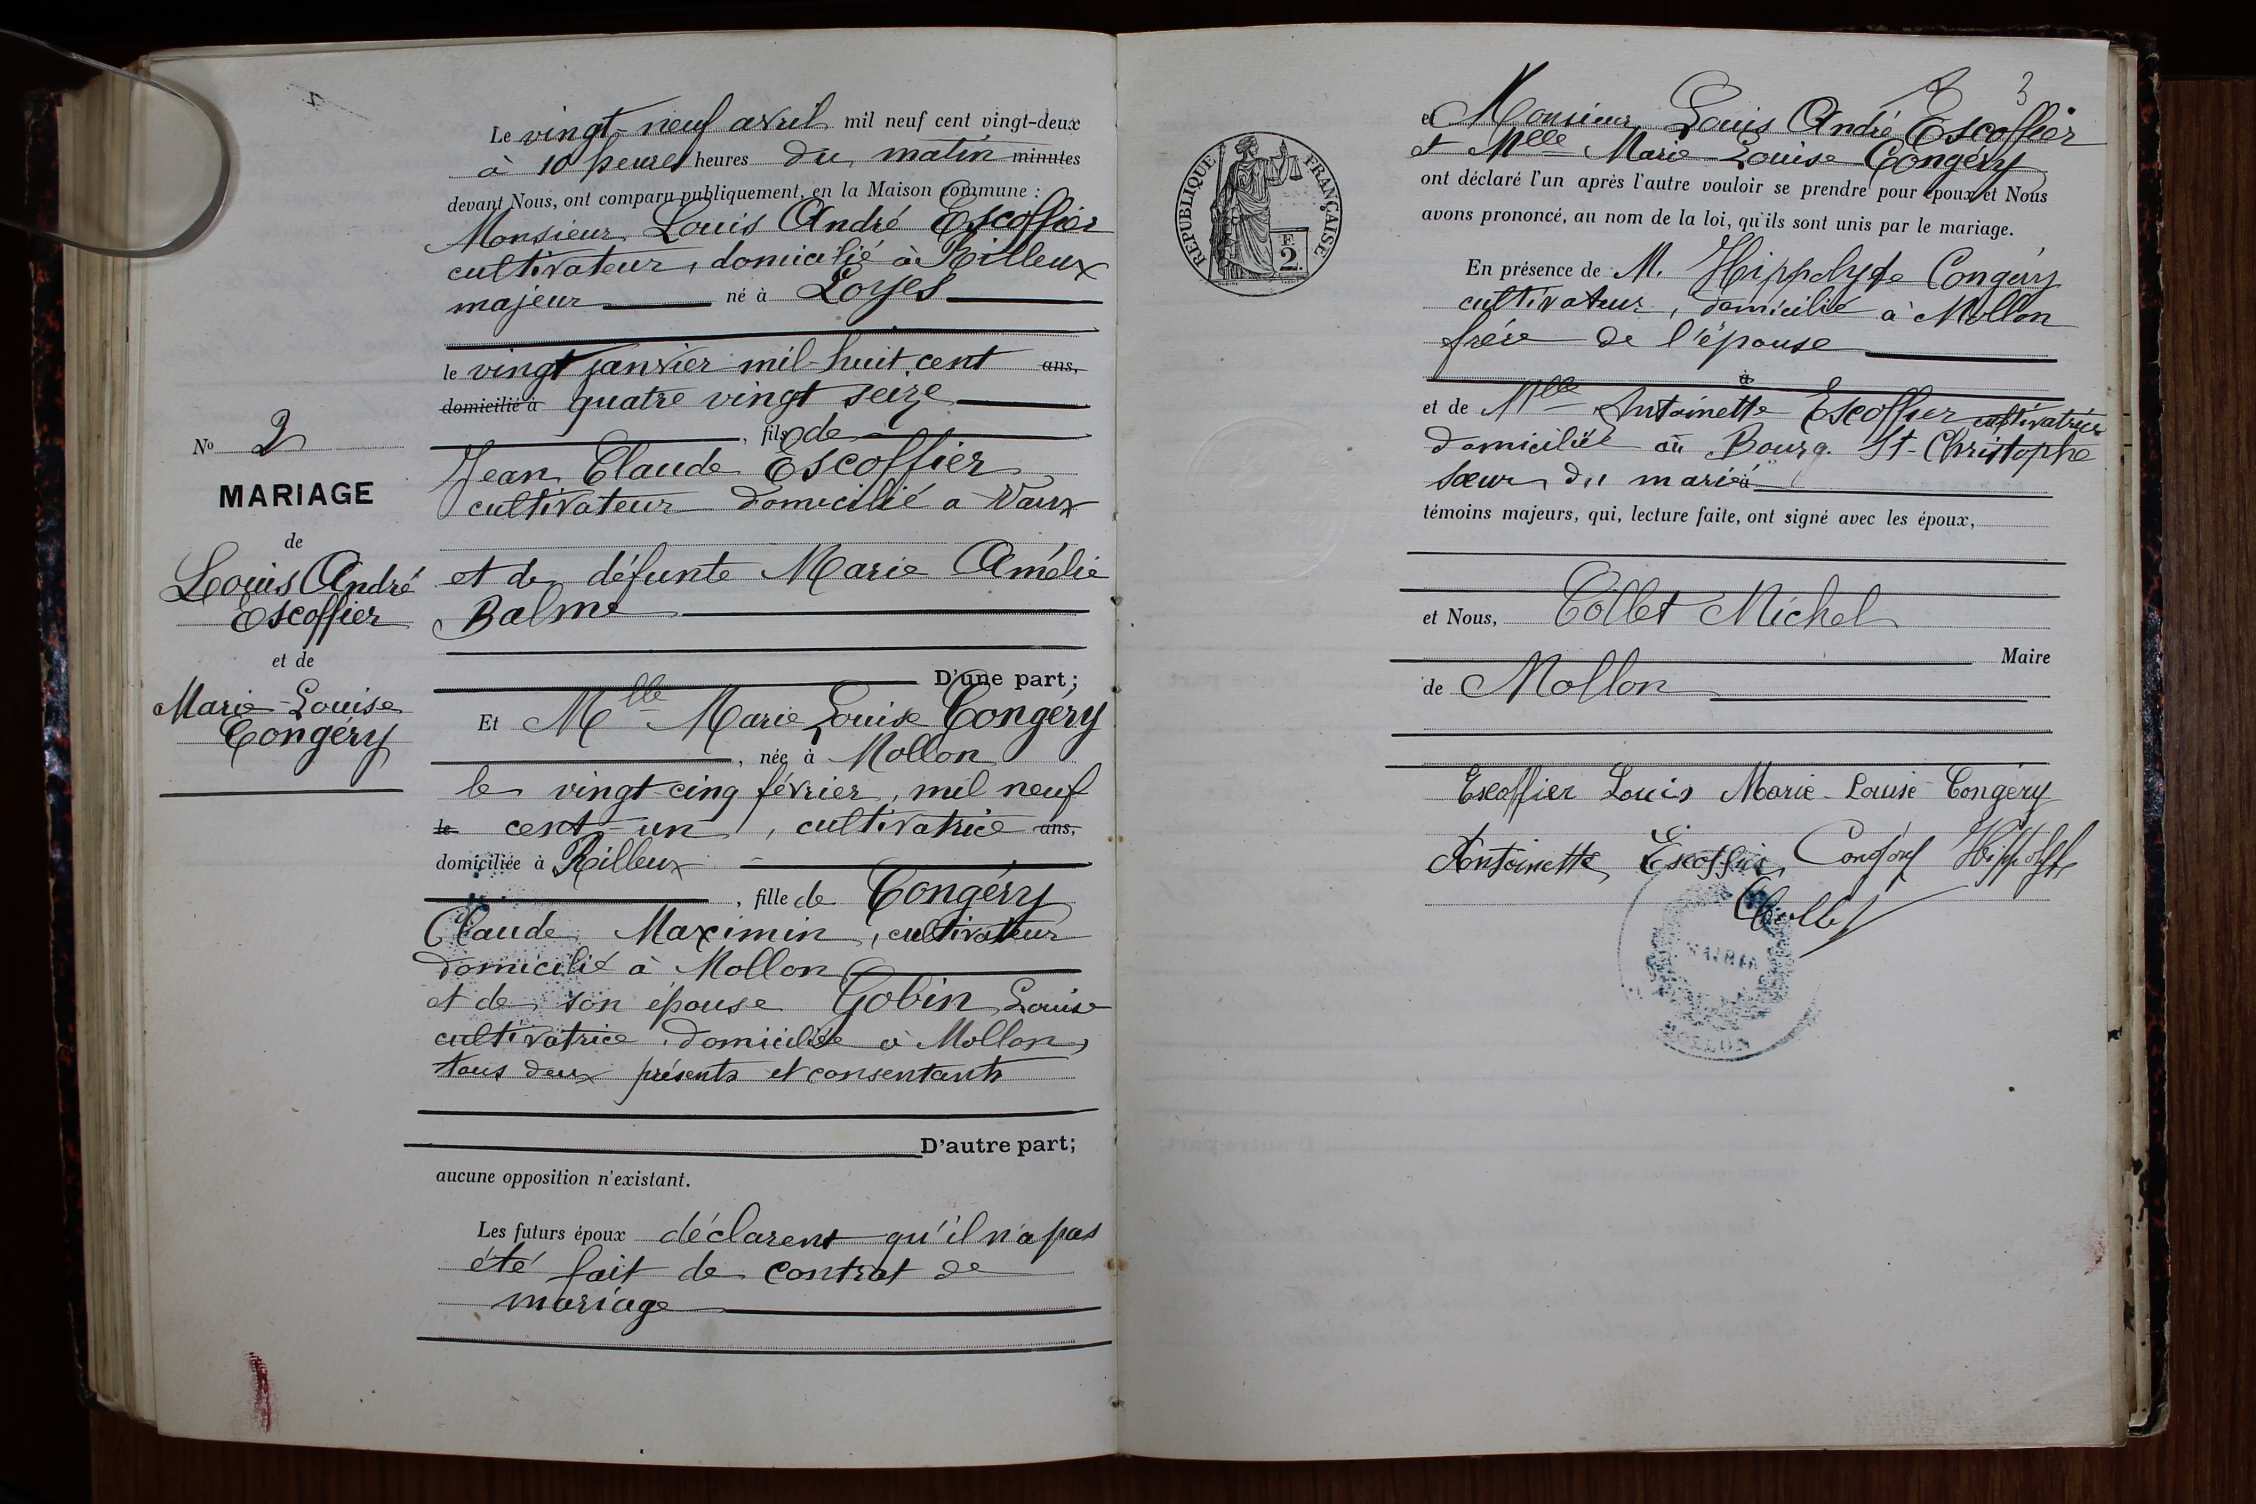 Le vingt-neuf avril mil neuf cent vingt-deux
à 10 heures heures du matin minutes
devant Nous, ont comparu publiquement, en la Maison commune :
Monsieur Louis André Escoffier
cultivateur, domicilié à Rilleux
majeur né à Loyes
le vingt janvier mil-huit cent ans,
domicilié à quatre vingt seize
, fils de
Jean Claude Escoffier
cultivateur domicilié a Vaux
et de défunte Marie Amélie
Balme
D'une part;
Et Mlle Marie Louise Congéry
, née à Mollon
le vingt-cinq février, mil neuf
le cent-un, cultivatrice ans,
domiciliée à Rilleux
, fille de Congéry
Claude Maximin, cultivateur
domicilié à Mollon
et de son épouse Gobin Louise
cultivatrice domiciliée à Mollon,
tous deux présents et consentants
D'autre part;
aucune opposition n'existant.
Les futurs époux déclarent qu'il n'a pas
été fait de contrat de
mariage
No 2
MARIAGE
de
Louis André
Escoffier
et de
Marie-Louise
Congéry
3
RÉPUBLIQUE FRANÇAISE
F
2
et Monsieur Louis André Escoffier
et Melle Marie-Louise Congéry
ont déclaré l'un après l'autre vouloir se prendre pour époux et Nous
avons prononcé, au nom de la loi, qu'ils sont unis par le mariage.
En présence de M. Hippolyte Congéry
cultivateur, domicilié à Mollon
frère de l'épouse
à
et de Mlle Antoinette Escoffier cultivatrice
domiciliée au Bourg. St-Christophe
sœur du marié à
témoins majeurs, qui, lecture faite, ont signé avec les époux,
et Nous, Collet Michel
Maire
de Mollon
Escoffier Louis Marie-Louise Congéry
Antoinette Escoffier Congéry Hippolyte
Collet
MAIRIE
MOLLON